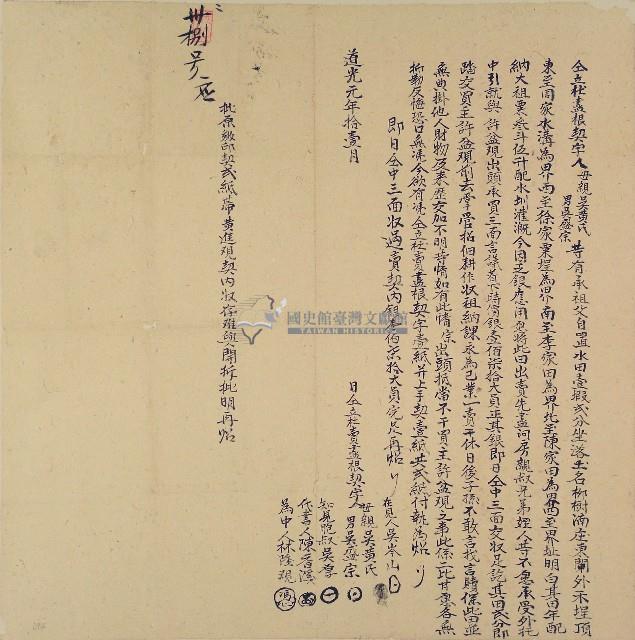 仝立杜賣盡根契字人母親吳黃氏男吳盛宗等有承祖父自置水田壹段貳分坐落土名柳樹湳庄東閘外禾埕頂
東至周家水溝為界西至徐家粟埕為界南至李家田為界北至陳家田為界四至界址明白其田年配
納大租粟叁斗伍升配水圳灌溉今因乏銀應用愿將此田出賣先盡問房親叔兄弟姪人等不愿承受外托
中引就與許盆現出頭承買三面言議着下時價銀壹佰柒拾大員正其銀即日仝中三面交收足訖其田貳分即
踏交買主許盆現前去掌管招佃耕作收租納課永為己業一賣千休日後子孫不敢言找言贖保此田並
無典掛他人財物及來歷交加不明等情如有此情宗出頭抵當不干買主許盆現之事此係二比甘愿各無
抑勒反悔恐口無憑今欲有憑仝立杜賣盡根契字壹紙并上手契壹紙共貳紙付執為炤
即日仝中三面收過賣契內銀壹佰柒拾大員完足再炤
在見人吳岑山
道光元年拾壹月 日仝立杜賣盡根契字人母親吳黃氏男吳盛宗
知見胞叔吳厚
代書人陳香溪
為中人林隆現
批原繳印契貳紙帶黃進現契內收存難與開拆批明再炤
卅捌号
國史館臺灣文獻館
TAIWAN HISTORICA